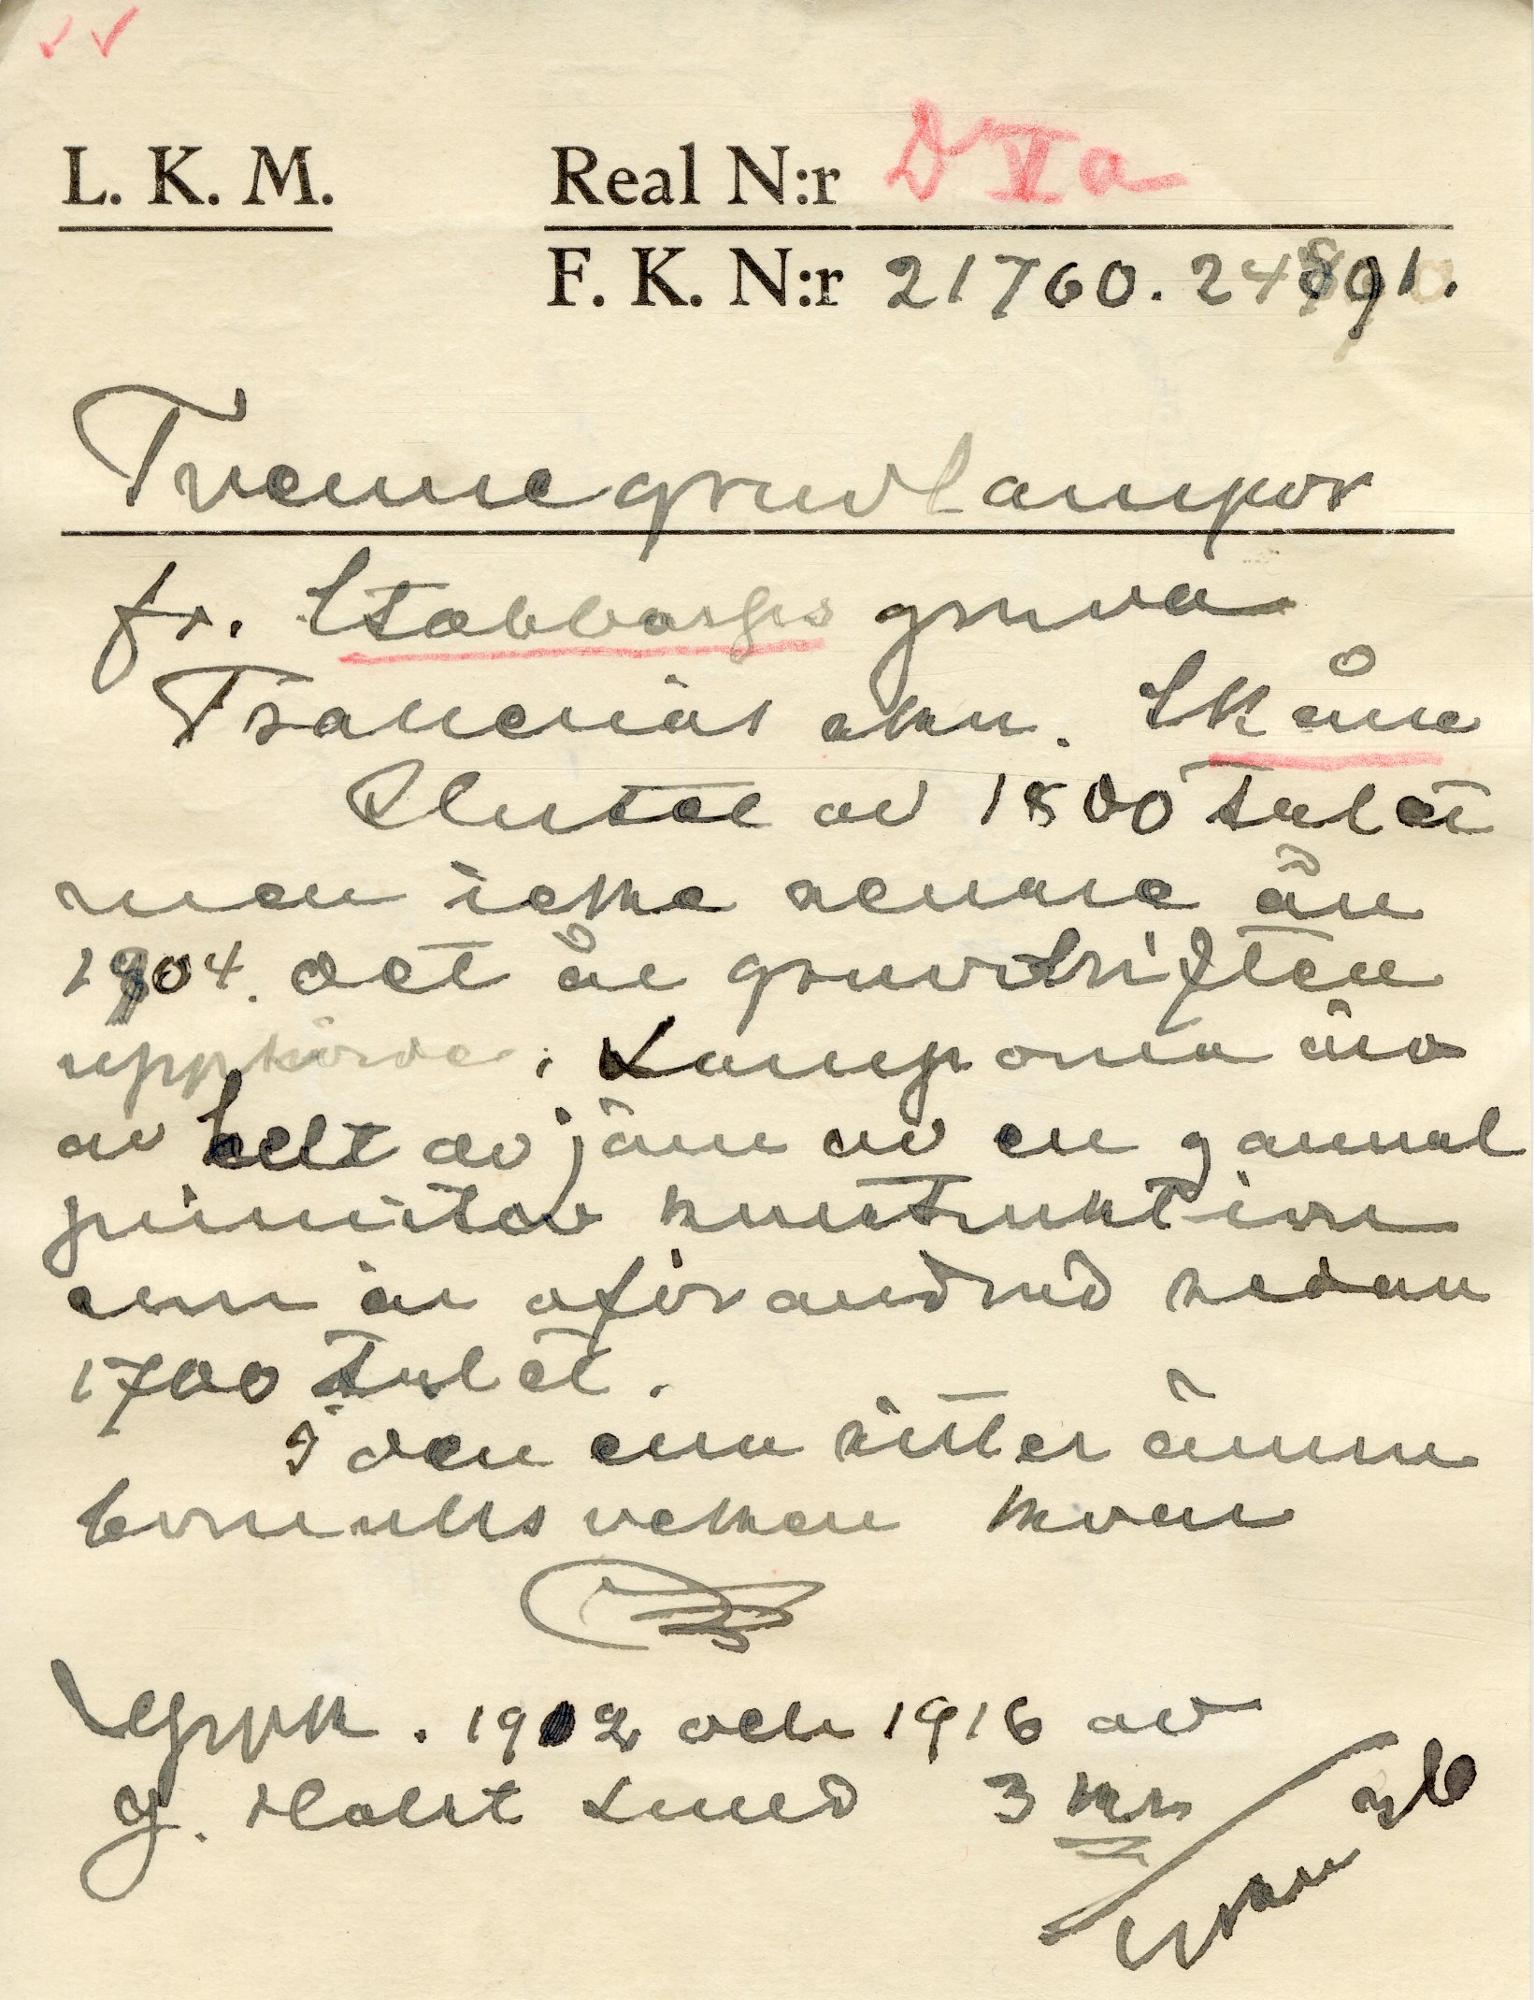 L. K. M.
Real N:r D V a
F. K. N:r 21760. 24891.
Tvenne gruvlampor
fr. Stabbarps gruva
skn. Skåne
Slutet av 1800 talet
men icke senare än
1904. det år gruvdriften
upphörde. Lamporna äro
av helt av järn av en gammal
primitiv konstruktion
som är oförändrad sedan
1700 talet.
I den ena sitter ännu
bomullsveken kvar
Uppk. 1912 och 1916 av
G. Holst Lund 3 kr